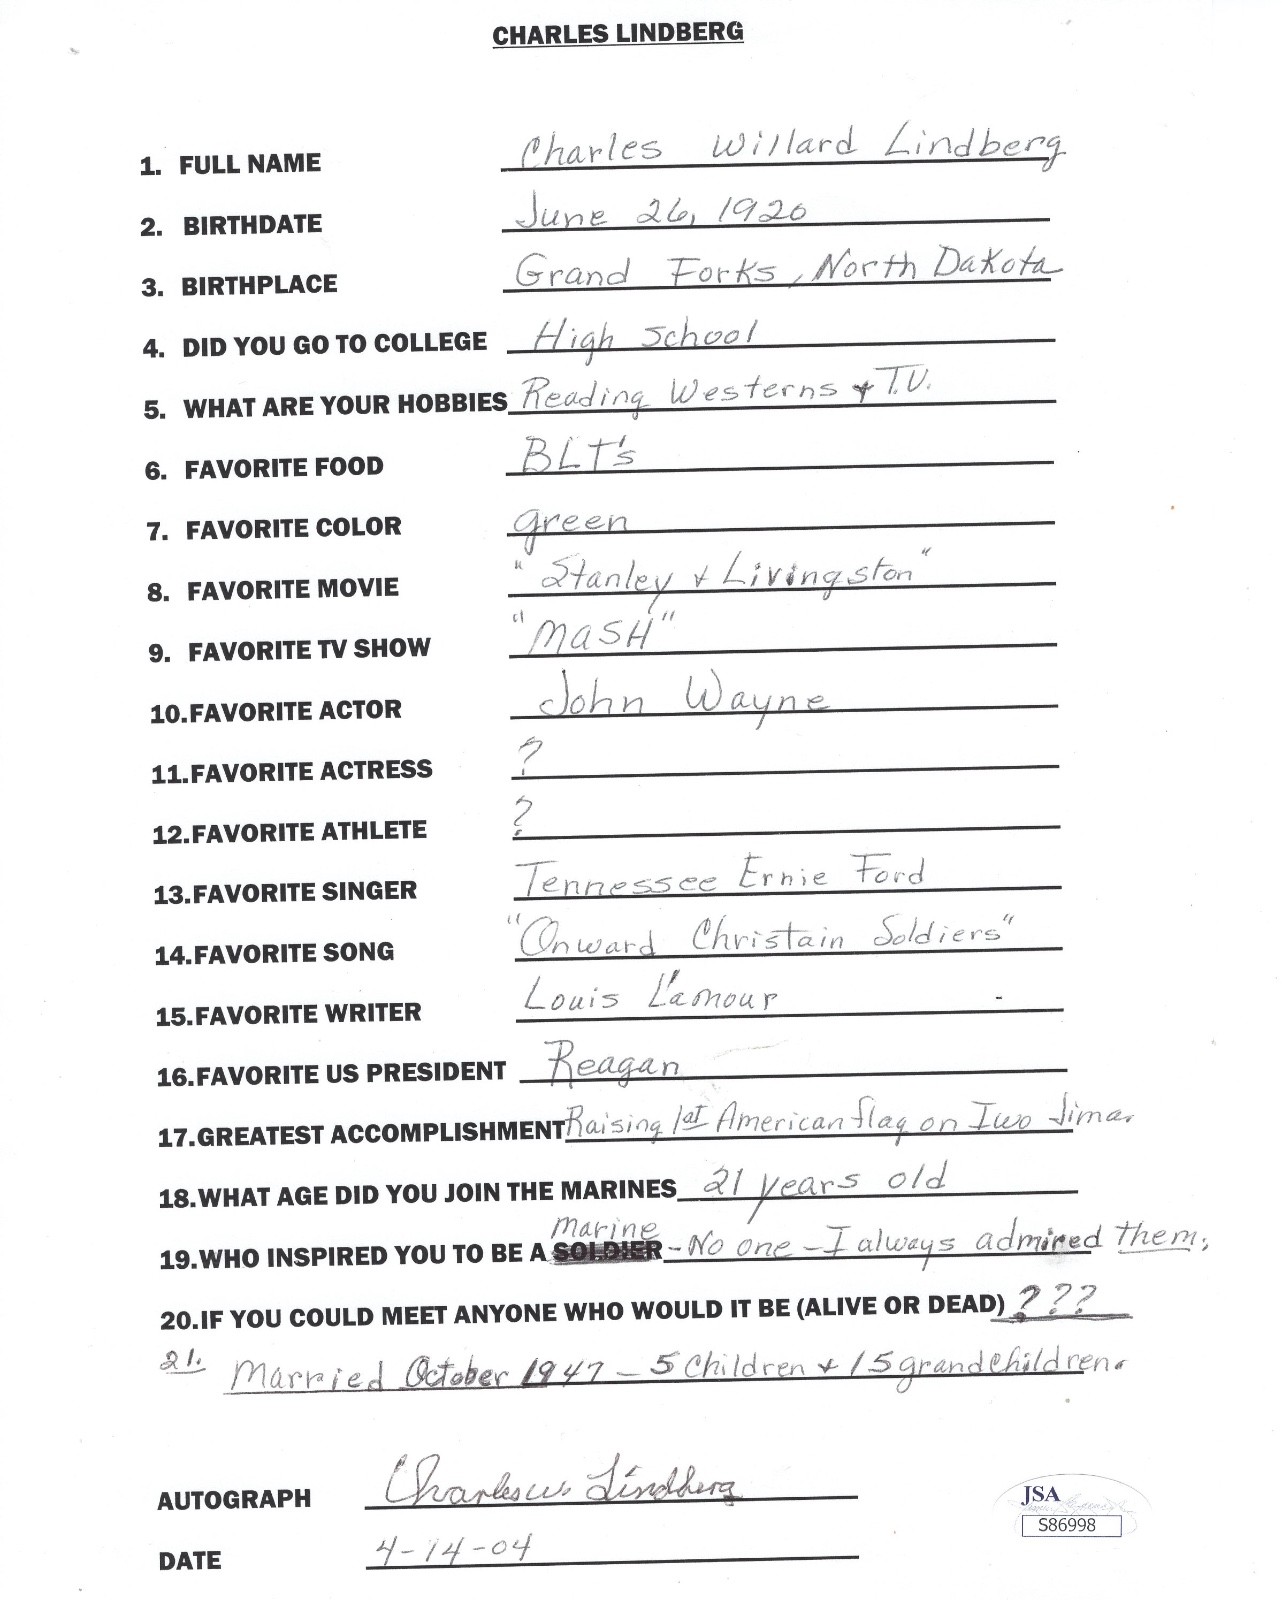 CHARLES LINDBERG
1. FULL NAME Charles Willard Lindberg
2. BIRTHDATE June 26, 1920
3. BIRTHPLACE Grand Forks, North Dakota
4. DID YOU GO TO COLLEGE High School
5. WHAT ARE YOUR HOBBIES Reading Westerns & T.V.
6. FAVORITE FOOD BLT's
7. FAVORITE COLOR green
8. FAVORITE MOVIE "Stanley & Livingston"
9. FAVORITE TV SHOW "MASH"
10.FAVORITE ACTOR John Wayne
11.FAVORITE ACTRESS ?
12.FAVORITE ATHLETE ?
13.FAVORITE SINGER Tennessee Ernie Ford
14.FAVORITE SONG "Onward Christain Soldiers"
15.FAVORITE WRITER Louis L'amour
16.FAVORITE US PRESIDENT Reagan
17.GREATEST ACCOMPLISHMENT Raising 1st American flag on Iwo Jima.
18.WHAT AGE DID YOU JOIN THE MARINES 21 years old
Marine
19.WHO INSPIRED YOU TO BE A SOLDIER - No one - I always admired them.
20.IF YOU COULD MEET ANYONE WHO WOULD IT BE (ALIVE OR DEAD) ???
21. Married October 1947 - 5 Children & 15 grandchildren.
AUTOGRAPH Charles W. Lindberg
JSA
S86998
DATE 4-14-04